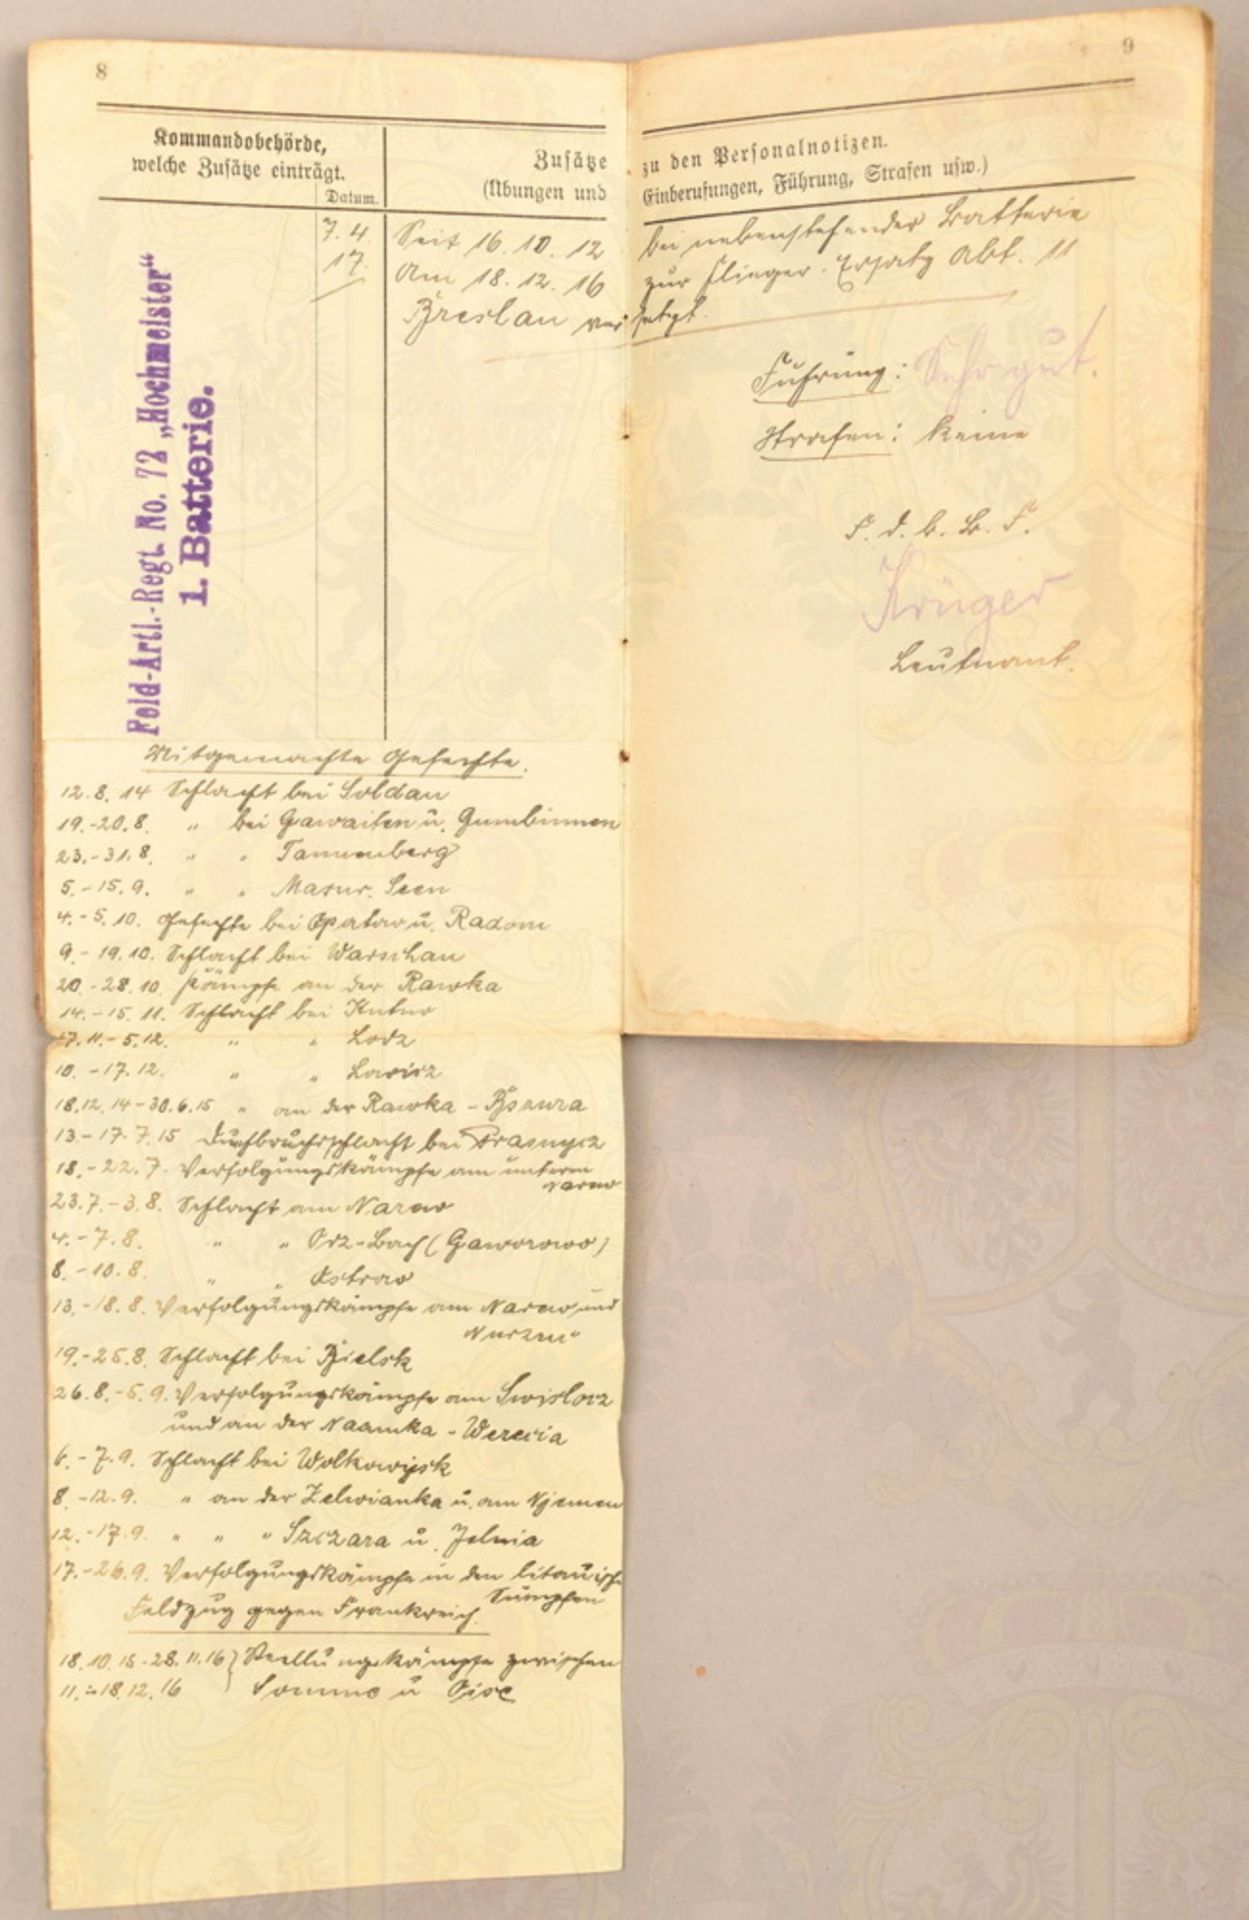 8
9
Kommandobehörde,
welche Zusätze einträgt.
Datum.
Zusätze zu den Personalnotizen.
(Übungen und Einberufungen, Führung, Strafen usw.)
Feld-Artl.-Regt. No. 72 „Hochmeister“
1. Batterie.
7.4.
17.
Seit 16. 10. 12 bei nebenstehender Batterie
Am 18. 12. 16 zur Flieger-Ersatz Abt. 11
Breslau versetzt.
Führung: Sehr gut.
Strafen: keine
F. d. b. B. F.
Krüger
Leutnant.
Mitgemachte Gefechte.
12.8.14 Schlacht bei Soldau
19.-20.8. " bei Gawaiten u. Gumbinnen
23.-31.8. " " Tannenberg
5.-15.9. " " Masur. Seen
4.-5.10. Gefechte bei Opatow u. Radom
9.-19.10. Schlacht bei Warschau
20.-28.10. Kämpfe an der Rawka
14.-15.11. Schlacht bei Kutno
17.11.-5.12. " " Lodz
10.-17.12. " " Lowicz
18.12.14-30.6.15 " an der Rawka-Bzura
13-17.7.15 Durchbruchsschlacht bei Prasnycz
18.-22.7. Verfolgungskämpfe am unteren
Narew
23.7.-3.8. Schlacht am Narew
4.-7.8. " " Orz-Bach (Goworowo)
8.-10.8. " " Ostrow
13.-18.8. Verfolgungskämpfe am Narew und
Nurzec
19.-25.8. Schlacht bei Bielsk
26.8.-5.9. Verfolgungskämpfe am Swislocz
und an der Naumka-Werecia
6.-7.9. Schlacht bei Wolkowysk
8.-12.9. " an der Zelwianka u. am Njemen
12.-17.9. " " " Szczara u. Jelnia
17.-26.9. Verfolgungskämpfe in den litauische
Sümpfen
Feldzug gegen Frankreich.
18.10.15-28.11.16 } Stellungskämpfe zwischen
11.-18.12.16 Somme u Oise